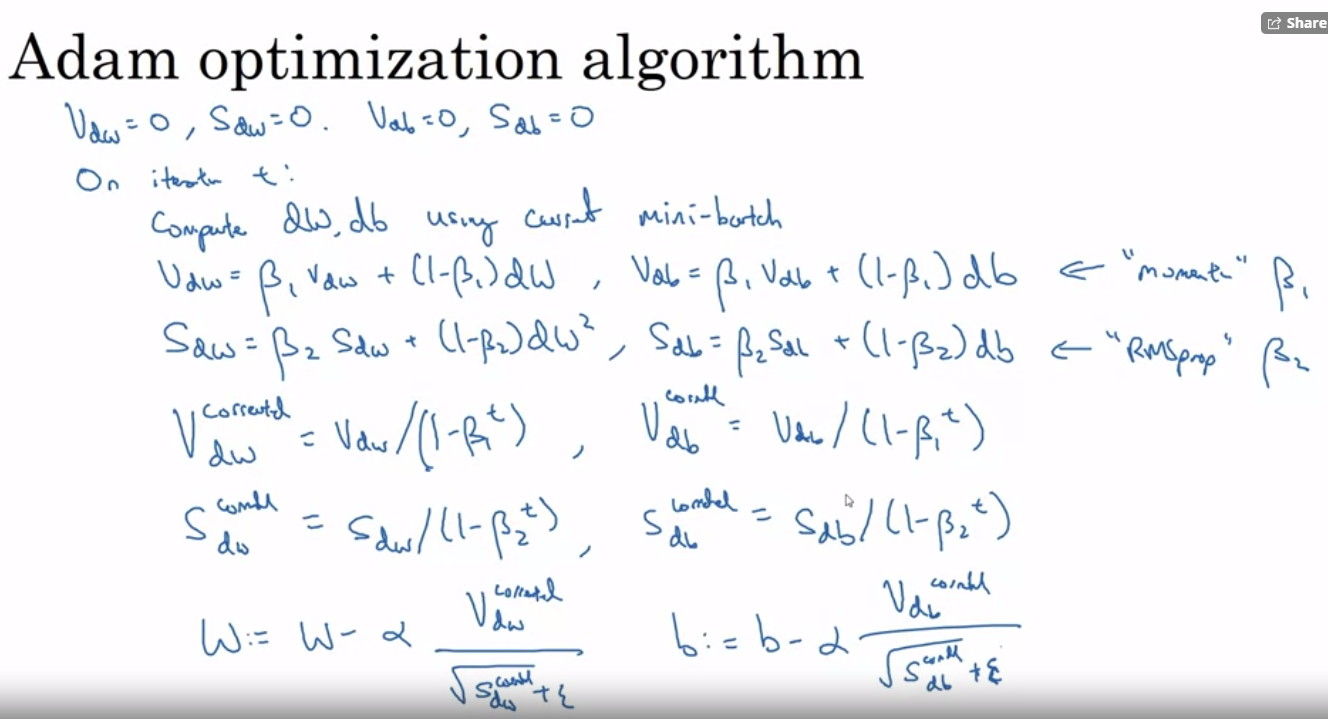 Share
Adam optimization algorithm
V_dw = 0, S_dw = 0. V_db = 0, S_db = 0
On iteratn t:
Compute dW, db using current mini-batch
V_dw = β₁ V_dw + (1-β₁) dW, V_db = β₁ V_db + (1-β₁) db ← "moment" β₁
S_dw = β₂ S_dw + (1-β₂) dW², S_db = β₂ S_db + (1-β₂) db ← "RMSprop" β₂
V_dw^corrected = V_dw/(1-β₁^t), V_db^corrected = V_db/(1-β₁^t)
S_dw^corrected = S_dw/(1-β₂^t), S_db^corrected = S_db/(1-β₂^t)
W := W - α V_dw^corrected / √S_dw^corrected + ε b := b - α V_db^corrected / √S_db^corrected + ε